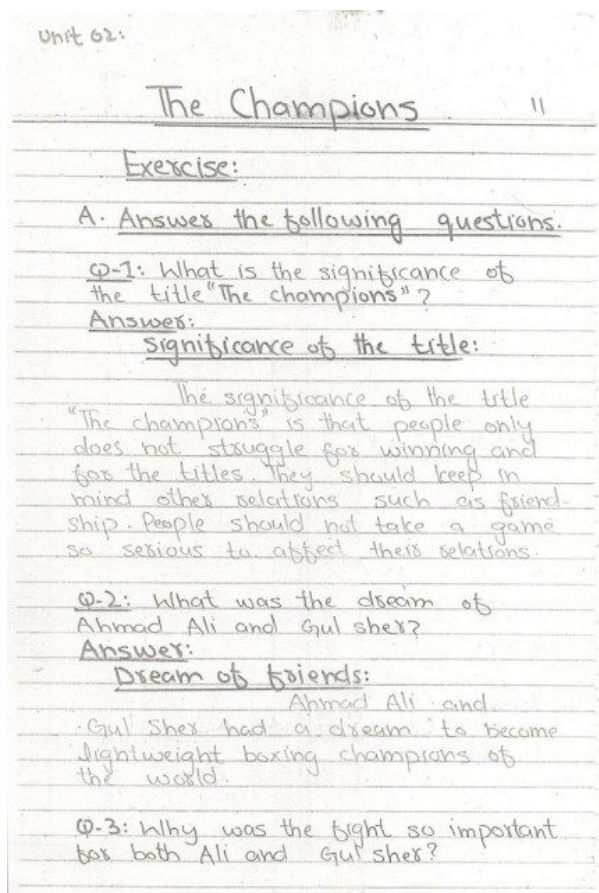 Unit 02:
The Champions 11
Exercise:
A. Answer the following questions.
Q-1: What is the significance of
the title "The champions"?
Answer:
Significance of the title:
The significance of the title
"The champions" is that people only
does not struggle for winning and
for the titles. They should keep in
mind other relations such as friend-
ship. People should not take a game
so serious to affect their relations.
Q-2: What was the dream of
Ahmad Ali and Gul sher?
Answer:
Dream of friends:
Ahmad Ali and
Gul Sher had a dream to become
lightweight boxing champions of
the world.
Q-3: Why was the fight so important
for both Ali and Gul sher?